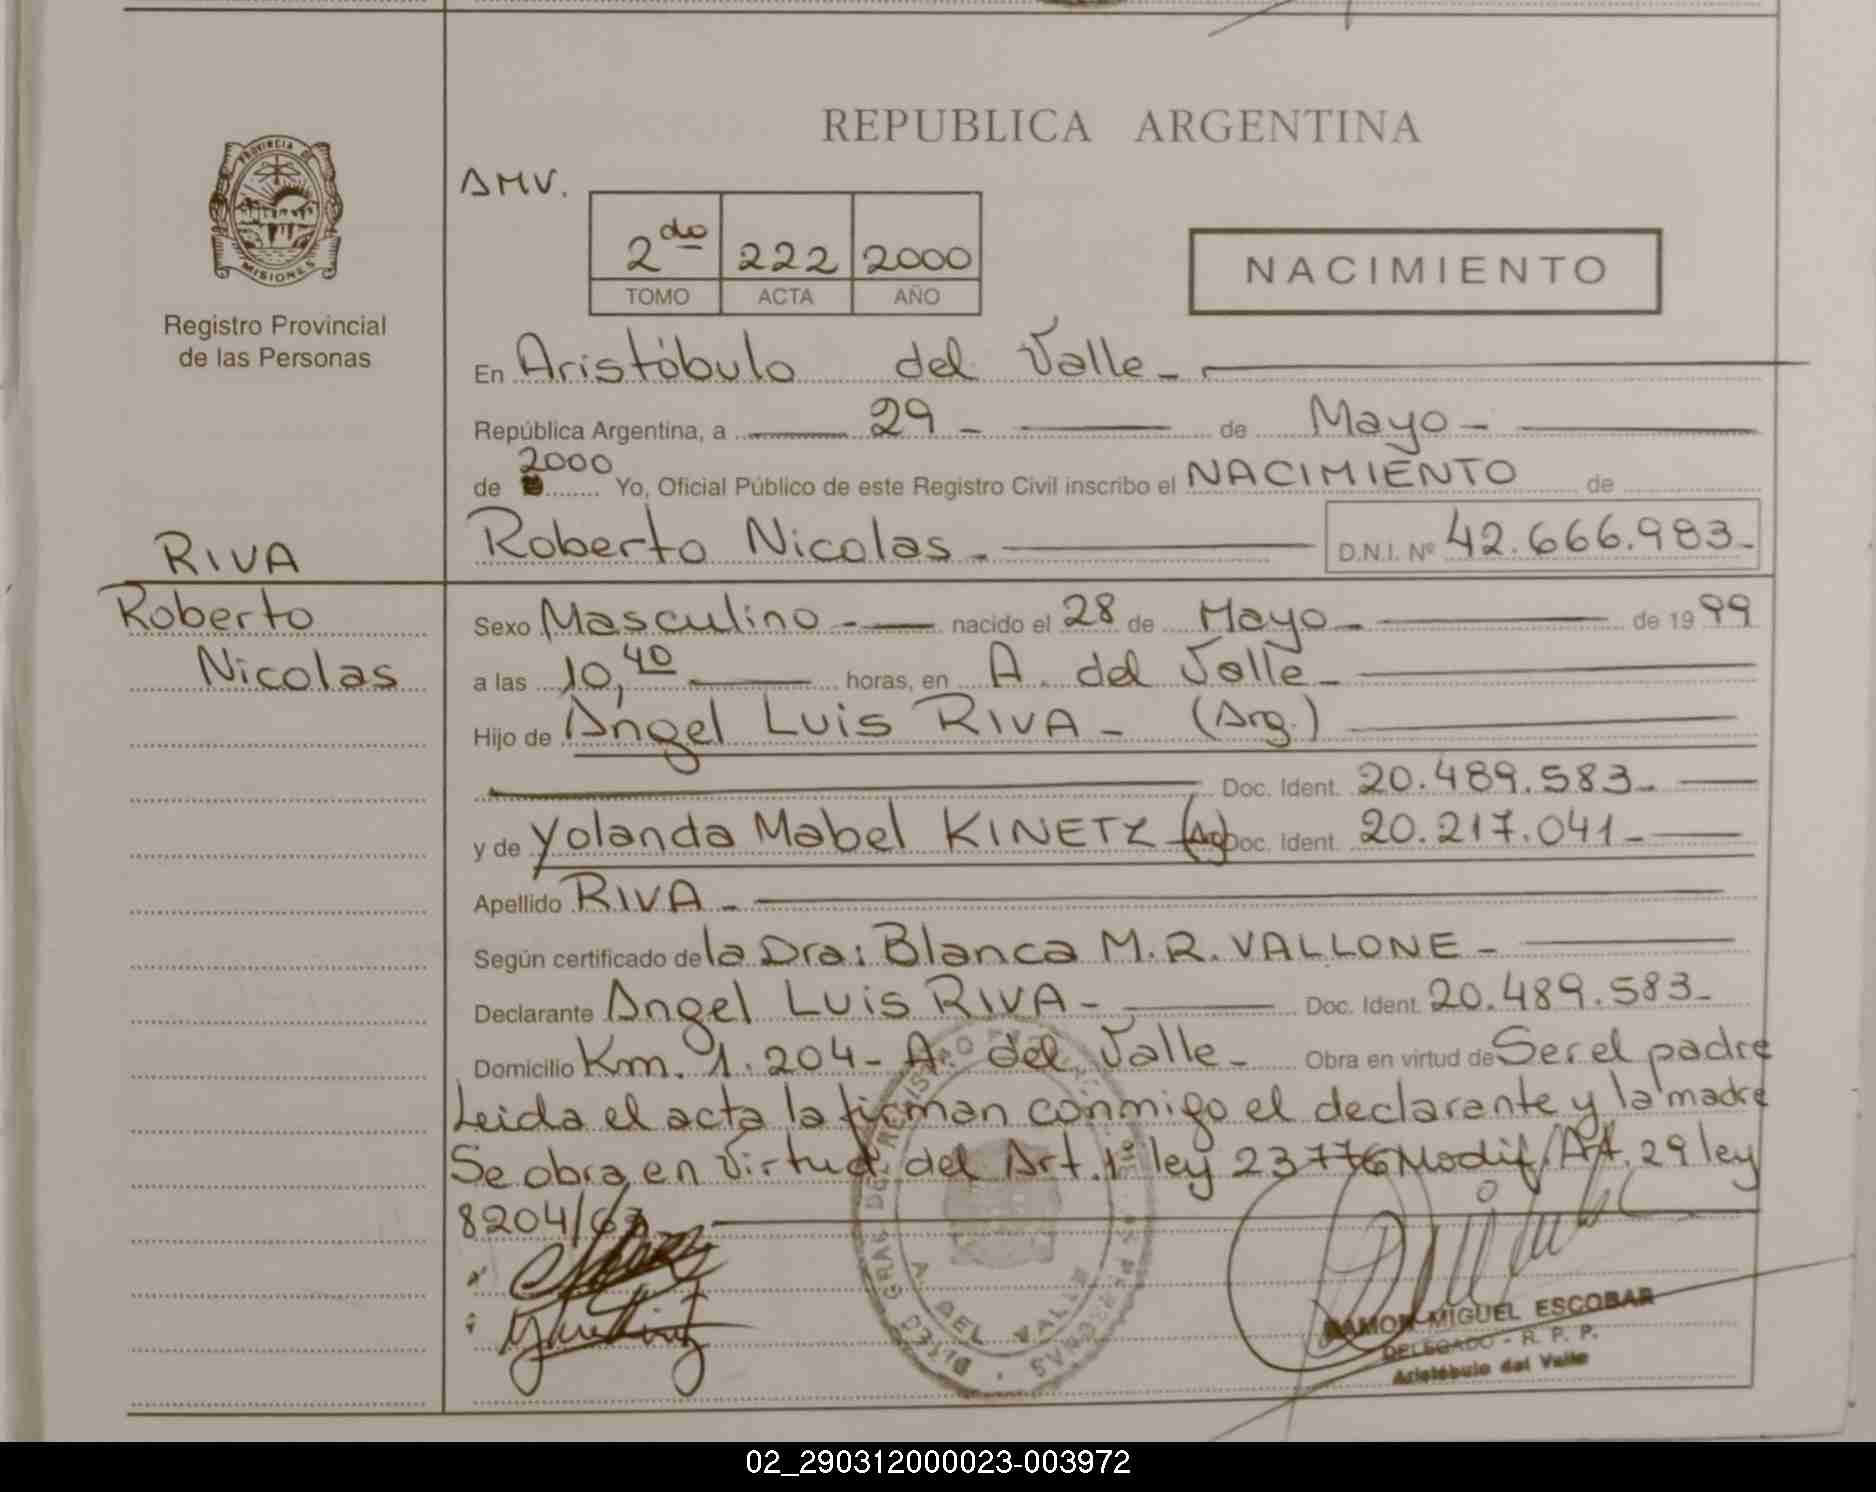 REPUBLICA ARGENTINA
PROVINCIA DE
MISIONES
Registro Provincial
de las Personas
AMV.
2do 222 2000
TOMO ACTA AÑO
NACIMIENTO
En Aristóbulo del Valle-
República Argentina, a 29- de Mayo-
2000
de Yo, Oficial Público de este Registro Civil inscribo el NACIMIENTO de
Roberto Nicolas- D.N.I. Nº 42.666.983-
RIVA
Roberto
Nicolas
Sexo Masculino- nacido el 28 de Mayo- de 1999
a las 10,40 horas, en A. del Valle-
Hijo de Angel Luis RIVA- (Arg.)
Doc. Ident. 20.489.583-
y de Yolanda Mabel KINETZ (Arg) Doc. Ident. 20.217.041-
Apellido RIVA-
Según certificado de la Dra: Blanca M.R. VALLONE-
Declarante Angel Luis RIVA- Doc. Ident. 20.489.583-
Domicilio Km. 1.204- A. del Valle- Obra en virtud de Ser el padre
Leida el acta la firman conmigo el declarante y la madre
Se obra en virtud del Art. 1º ley 23776 Modif. Art. 29 ley
8204/63
A. DEL VALLE
RAMON MIGUEL ESCOBAR
DELEGADO - R. P. P.
Aristóbulo del Valle
02_290312000023-003972